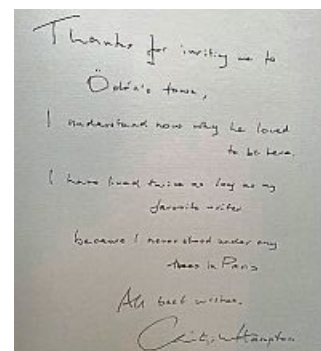 Thanks for inviting me to
Ödön's town,
I understand now why he loved
to be here.
I have lived twice as long as my
favorite writer
because I never stood under any
trees in Paris
All best wishes.
Christopher Hampton